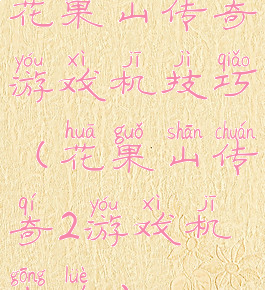 花果山传奇
yóu xì jī jì qiǎo
游戏机技巧
huā guǒ shān chuán
(花果山传
qí 2 yóu xì jī
奇2游戏机
gōng lüè